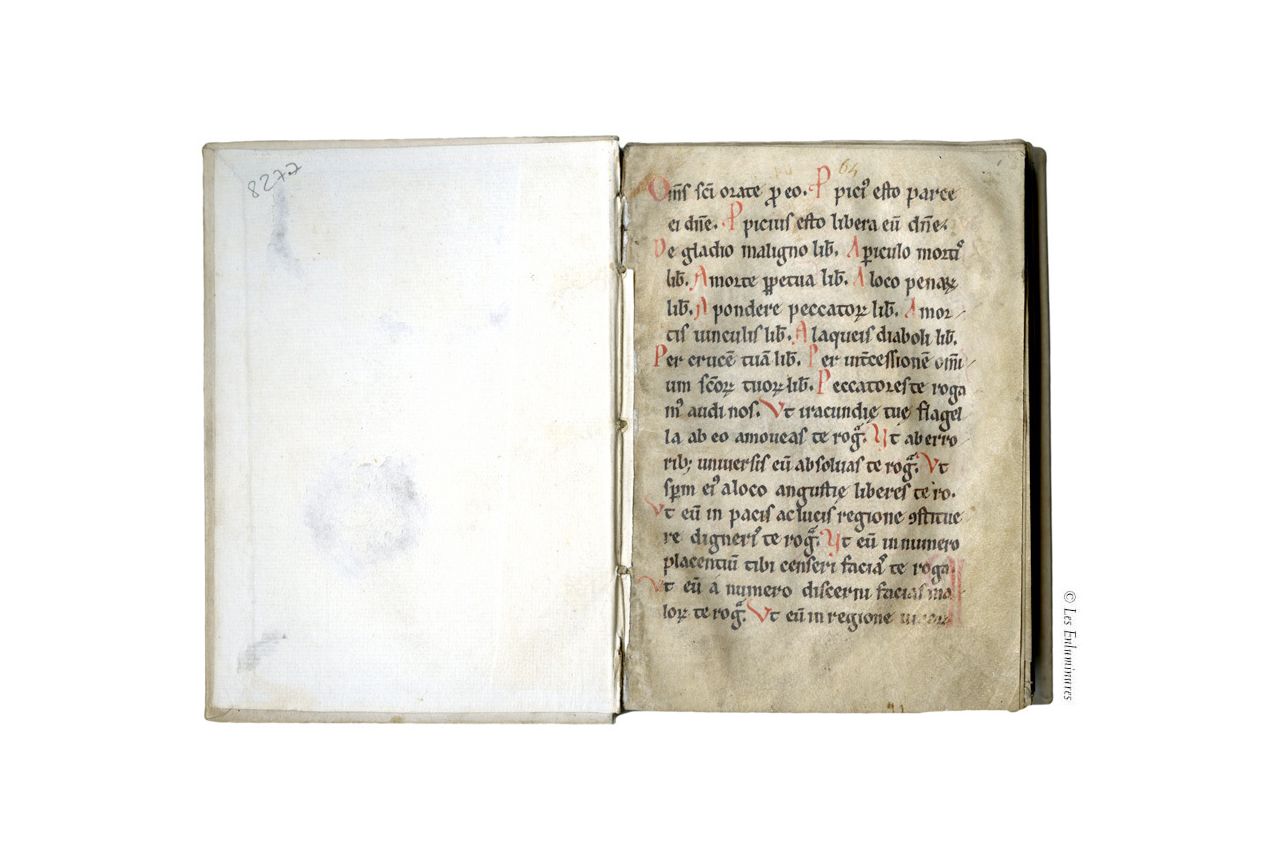 8277
64
Om̄s sc̄i orate ꝓ eo. Ꝓpiciꝰ esto parce
ei dn̄e. Ꝓpicius esto libera eū dn̄e.
De gladio maligno lib̄. A ꝑiculo mortiꝰ
lib̄. A morte ꝑpetua lib̄. A loco penaꝝ
lib̄. A pondere peccatoꝝ lib̄. A mor
tis uinculis lib̄. A laqueis diaboli lib̄.
Per crucē tuā lib̄. Per int̄cessionē om̄i
um sc̄oꝝ tuoꝝ lib̄. Peccatores te roga
mꝰ audi nos. Vt iracundię tue flagel
la ab eo amoueas te roḡ. Vt ab erro
ribꝫ uniuersis eū absoluas te roḡ. Vt
sp̄m eiꝰ a loco angustię liberes te ro.
Vt eū in pacis ac lucis regione ꝯstitue
re digneriꝰ te roḡ. Vt eū in numero
placentiū tibi censeri faciaꝰ te roga.
Vt eū a numero discerni facias ma
loꝝ te roḡ. Vt eū in regione
© Les Enluminures